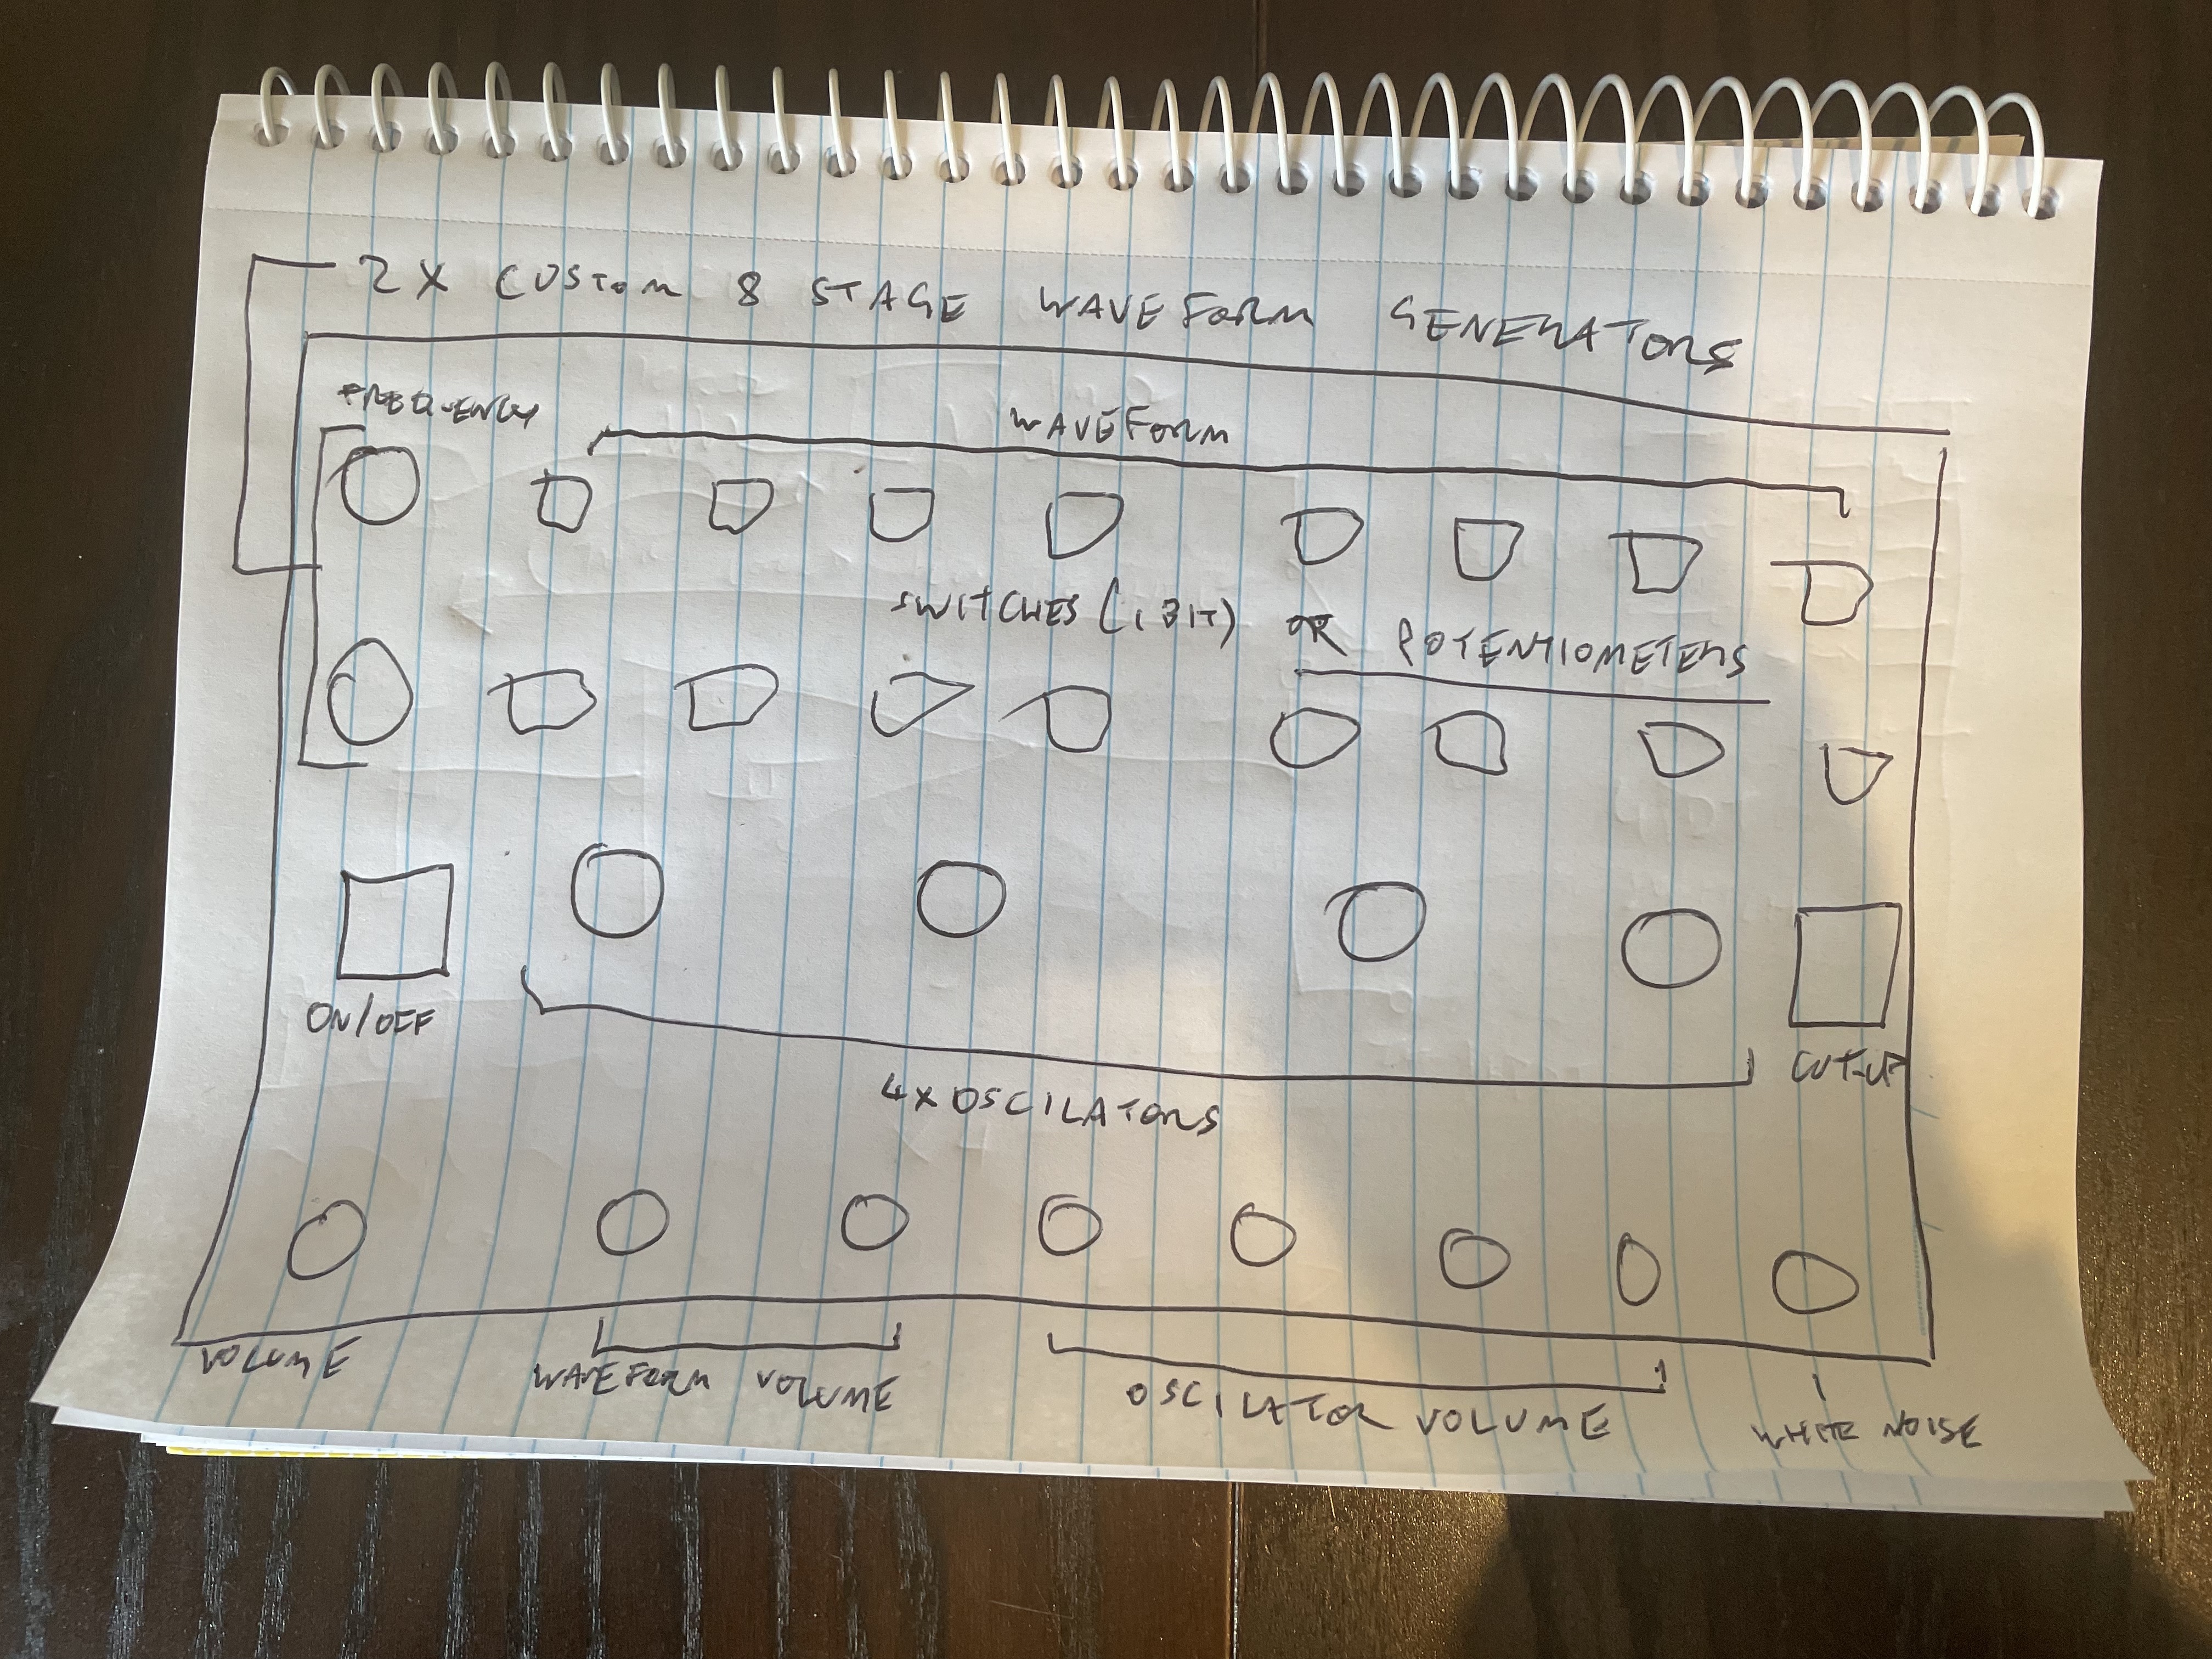 2X CUSTOM 8 STAGE WAVEFORM GENERATORS
FREQUENCY
WAVEFORM
SWITCHES (1 BIT) OR POTENTIOMETERS
ON/OFF
CUT-UP
4X OSCILATORS
VOLUME
WAVEFORM VOLUME
OSCILATOR VOLUME
WHITE NOISE